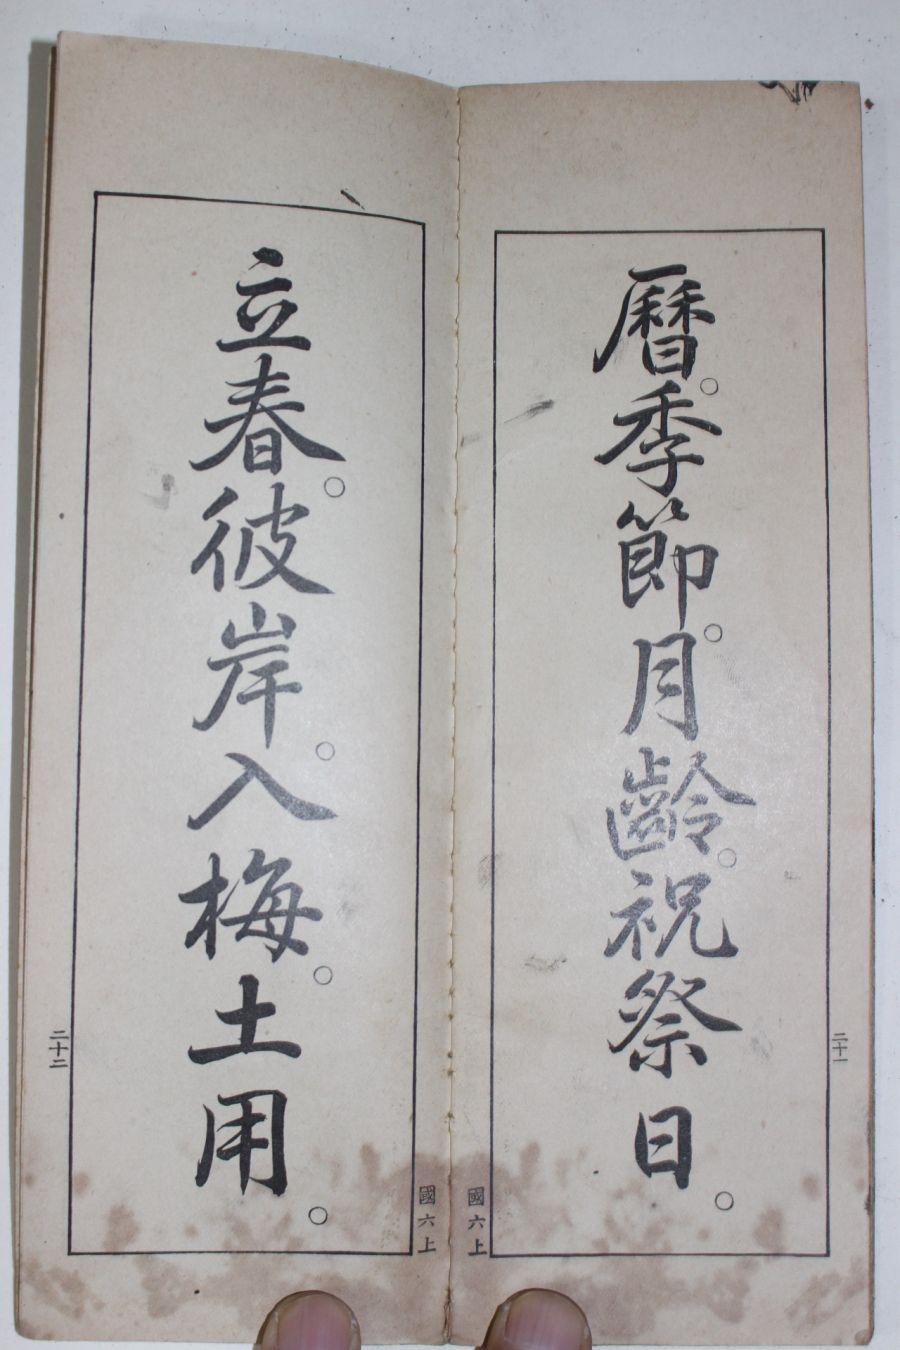 曆。季節。月齡。祝祭日。
二十一
國六上
立春。彼岸。入梅。土用。
二十二
國六上